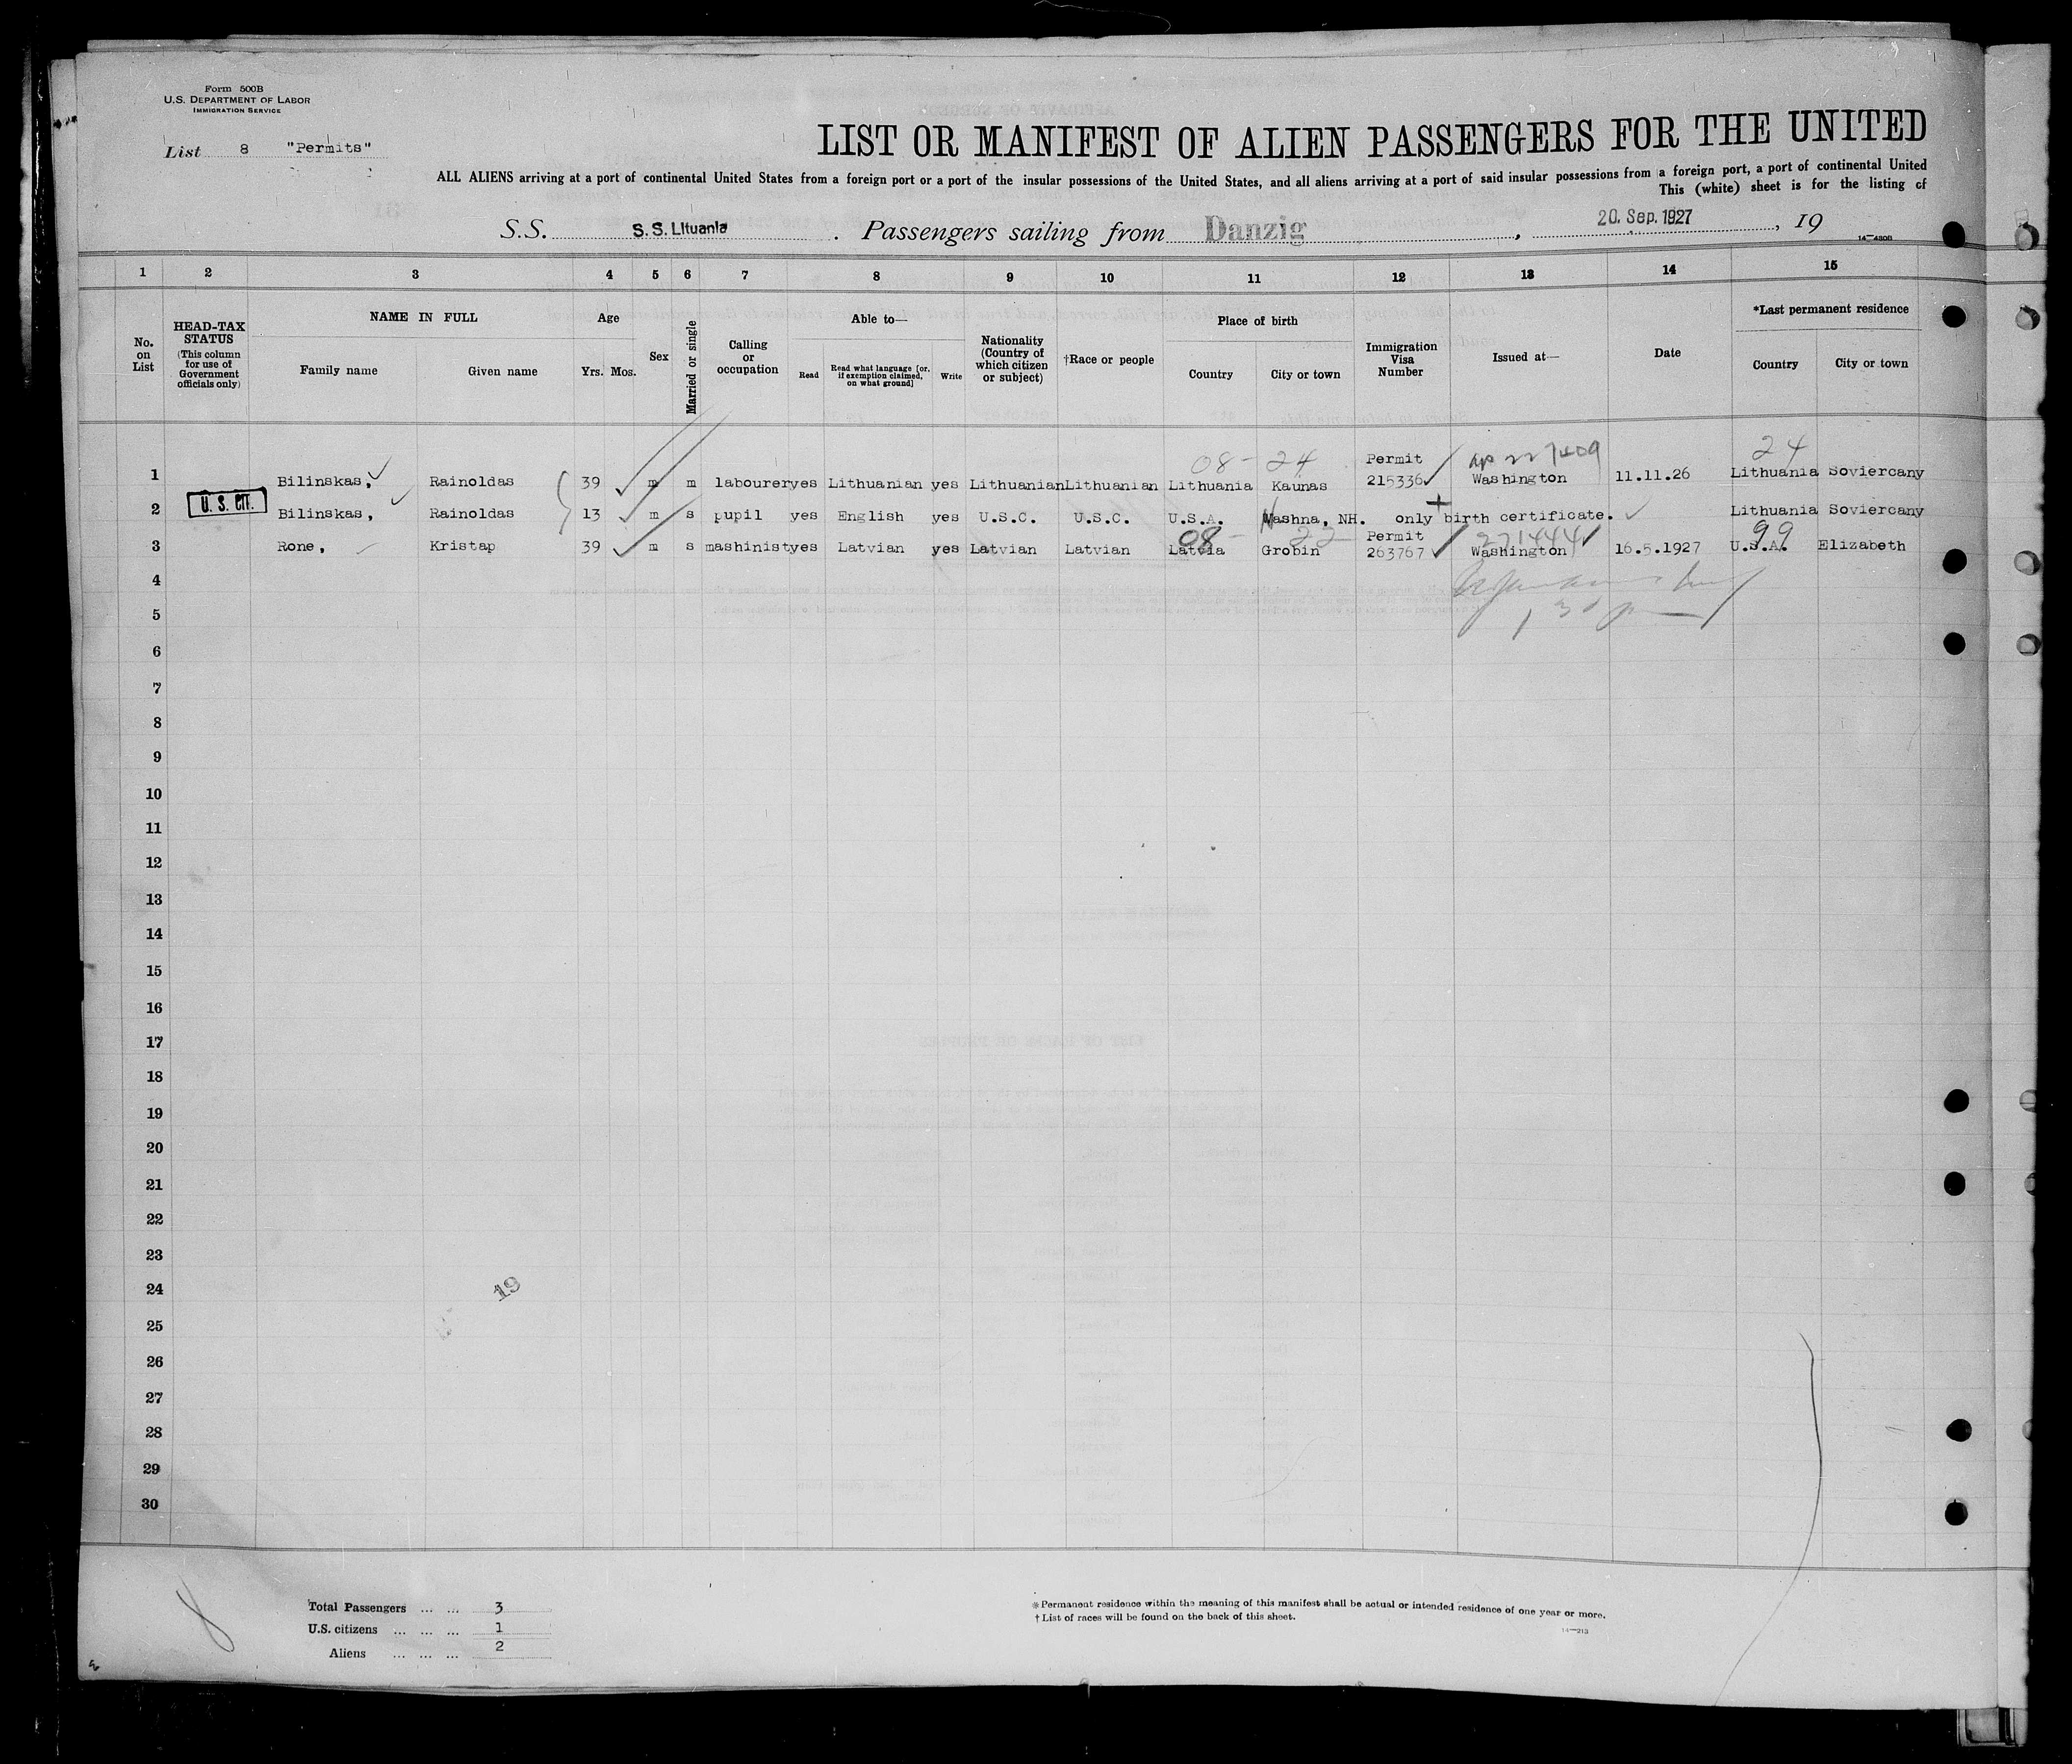 Form 500B
U.S. DEPARTMENT OF LABOR
IMMIGRATION SERVICE
List 8 "Permits"
LIST OR MANIFEST OF ALIEN PASSENGERS FOR THE UNITED
ALL ALIENS arriving at a port of continental United States from a foreign port or a port of the insular possessions of the United States, and all aliens arriving at a port of said insular possessions from a foreign port, a port of continental United
This (white) sheet is for the listing of
S.S. S.S. Lituania . Passengers sailing from Danzig , 20. Sep. 1927 , 19
14—480B
1 2 3 4 5 6 7 8 9 10 11 12 13 14 15
No. on List
HEAD-TAX STATUS (This column for use of Government officials only)
NAME IN FULL
Family name Given name
Age
Yrs. Mos.
Sex
Married or single
Calling or occupation
Able to—
Read Read what language [or, if exemption claimed, on what ground] Write
Nationality (Country of which citizen or subject)
†Race or people
Place of birth
Country City or town
Immigration Visa Number
Issued at—
Date
*Last permanent residence
Country City or town
08- 24 Permit 227409 24
1 Bilinskas, Rainoldas 39 m m labourer yes Lithuanian yes Lithuanian Lithuanian Lithuania Kaunas 215336 Washington 11.11.26 Lithuania Soviercany
2 U.S. CIT. Bilinskas, Rainoldas 13 m s pupil yes English yes U.S.C. U.S.C. U.S.A. Nashna, NH. only birth certificate. Lithuania Soviercany
08- 22 Permit 271444 99
3 Rone, Kristap 39 m s mashinist yes Latvian yes Latvian Latvian Latvia Grobin 263767 Washington 16.5.1927 U.S.A. Elizabeth
4
5
6
7
8
9
10
11
12
13
14
15
16
17
18
19
20
21
22
23
24
19
25
26
27
28
29
30
8
Total Passengers ... ... 3
U.S. citizens ... ... ... 1
Aliens ... ... ... 2
* Permanent residence within the meaning of this manifest shall be actual or intended residence of one year or more.
† List of races will be found on the back of this sheet.
14—213